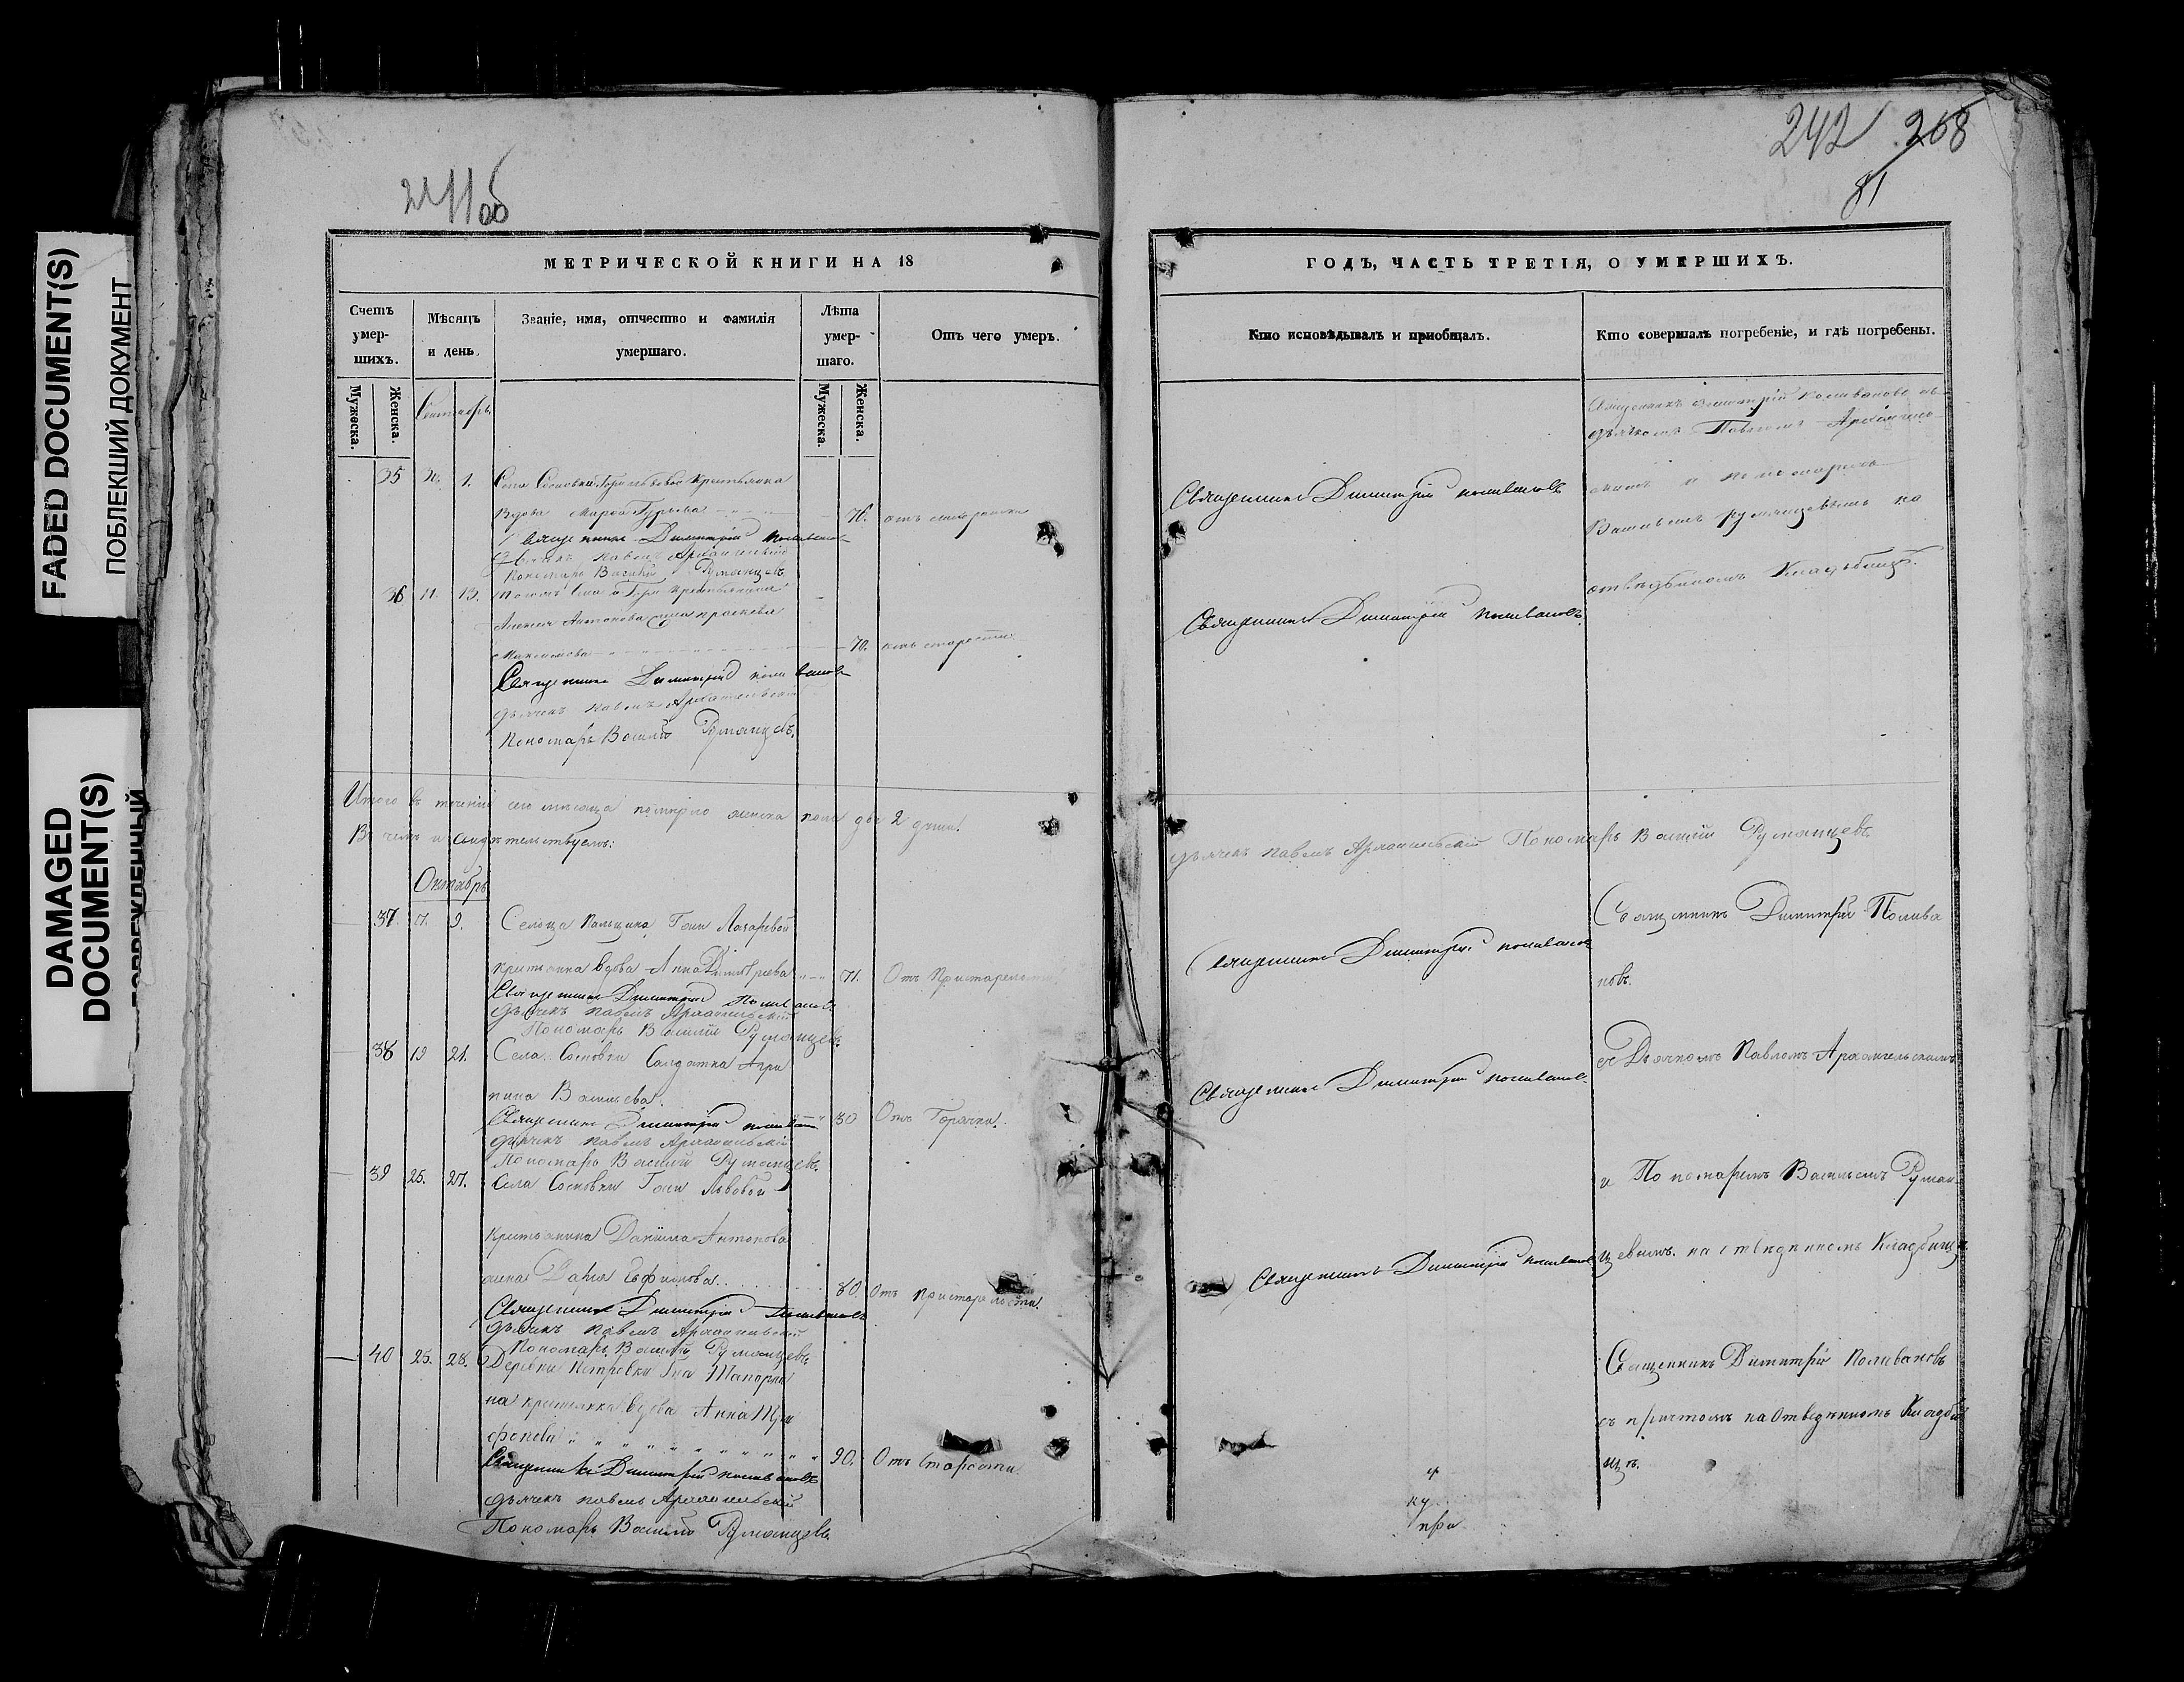 FADED DOCUMENT(S)
ПОБЛЕКШИЙ ДОКУМЕНТ
DAMAGED
DOCUMENT(S)
241 об
МЕТРИЧЕСКОЙ КНИГИ НА 18
Счетъ умер- шихъ.
Мѣсяцъ и день.
Званіе, имя, отчество и фамилія умершаго.
Лѣта умер- шаго.
Отъ чего умеръ.
Мужеска.
Женска.
Мужеска.
Женска.
Сентябрь
35 1. Села Сосновки крестьянка
Вдова Марѳа Гурьева 76. отъ старости
Священникъ Димитрій Поливановъ
Дьячекъ Павелъ Архангельскій
Пономарь Василій Румянцевъ
36 11. 13.
Алексея Антонова жена
Максимова 70. отъ старости
Священникъ Димитрій Поливановъ
Дьячекъ Павелъ Архангельскій
Пономарь Василій Румянцевъ.
Итого в теченіи сего мѣсяца померло женска пола двѣ 2 души.
В чемъ и свидѣтельствуемъ:
Октябрь
37. 7. 9. Сельца Пальщина Гжи Лазаревой
крестьянка вдова Анна Димитріева 71. Отъ Престарелости
Священникъ Димитрій Поливановъ
Дьячекъ Павелъ Архангельскій
Пономарь Василій Румянцевъ
38 19 21. Села Сосновки Салдатка Агри
пина Васильева. 30 Отъ Горячки.
Священникъ Димитрій Поливановъ
Дьячекъ Павелъ Архангельскій
Пономарь Василій Румянцевъ.
39 25. 27. Села Сосновки Гжи Львовой
крестьянина Данила Антонова
жена Дарья 80. Отъ Престарелости.
Священникъ Димитрій Поливановъ
Дьячекъ Павелъ Архангельскій
Пономарь Василій Румянцевъ
40 25. 28. Деревни Петровки Гна
на крестьянка вдова Анна
90. Отъ Старости
Священникъ Димитрій Поливановъ
Дьячекъ Павелъ Архангельскій
Пономарь Василій Румянцевъ
242 268
81
ГОДЪ, ЧАСТЬ ТРЕТІЯ, О УМЕРШИХЪ.
Кто исповѣдывалъ и пріобщалъ.
Кто совершалъ погребеніе, и гдѣ погребены.
Священникъ Димитрій Поливановъ съ
дьячкомъ Павломъ Архангель
скимъ и пономаремъ
Священникъ Димитрій Поливановъ
Васильемъ Румянцевымъ на
отведенномъ Кладбищѣ.
Священникъ Димитрій Поливановъ
Дьячекъ Павелъ Архангельскій Пономарь Василій Румянцевъ
Священникъ Димитрій Полива
Священникъ Димитрій Поливановъ
новъ.
съ Дьячкомъ Павломъ Архангельскимъ
Священникъ Димитрій Поливановъ
и Пономаремъ Васильемъ Румян
Священникъ Димитрій Поливановъ
цевымъ. на отведенномъ Кладбищѣ
Священникъ Димитрій Поливановъ
съ причтомъ на Отведенномъ Кладби
щѣ.